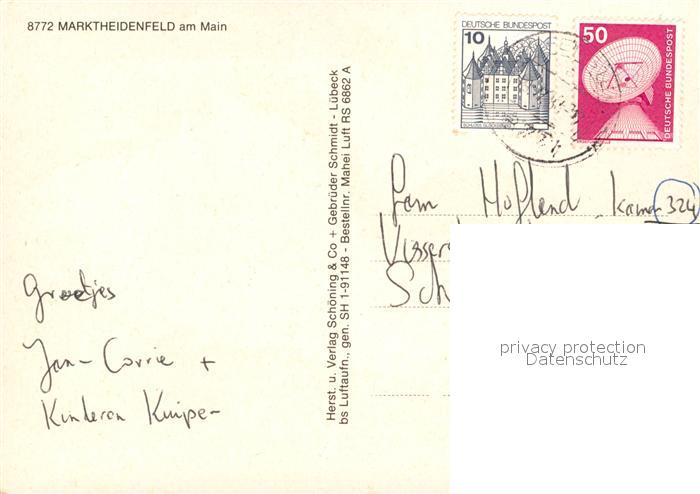 8772 MARKTHEIDENFELD am Main
DEUTSCHE BUNDESPOST
10
50
DEUTSCHE BUNDESPOST
Herst. u. Verlag Schöning & Co + Gebrüder Schmidt - Lübeck
bs Luftaufn., gen. SH 1-91148 - Bestellnr. Mahei Luft RS 6862 A
Fam Hofland Kamer 324
Visser
Sch
privacy protection
Datenschutz
Groetjes
Jan - Corrie +
Kinderen Kuiper